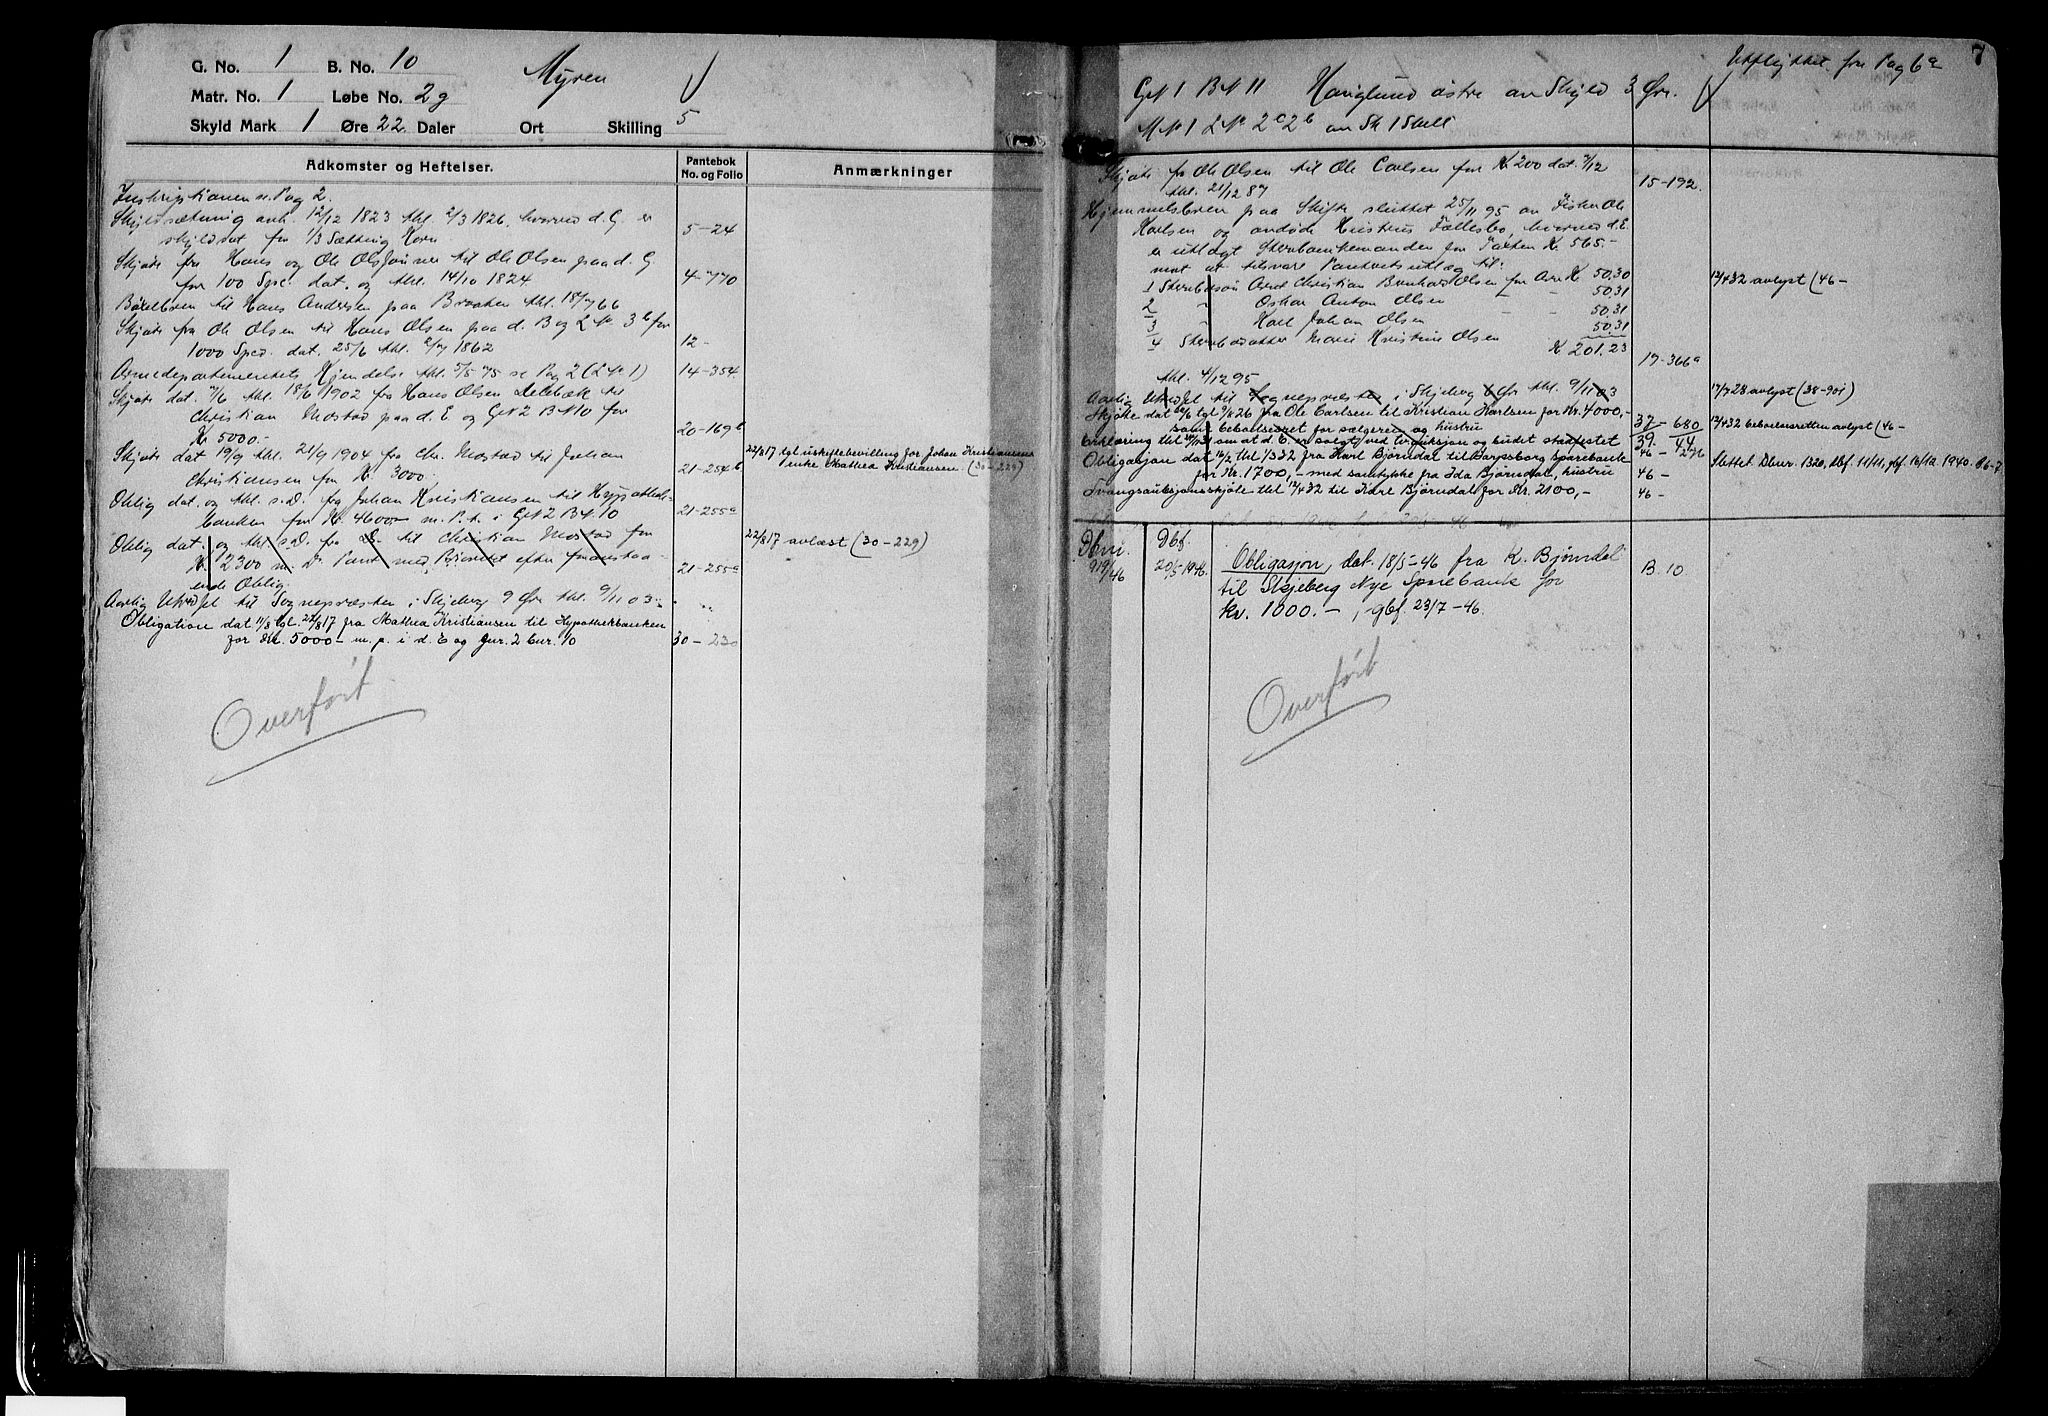 G. No. 1 B. No. 10 Myren
Matr. No. 1 Løbe No. 2g
Skyld Mark 1 Øre 22 Daler Ort Skilling 5
Adkomster og Heftelser. Pantebok No. og Folio Anmærkninger
Pag 2.
Skyldsætning anh. 12/12 1823 thl. 2/3 1826, hvorved d. G. er
skyldsat for 1/3 Sætting Korn 5-24
Skjøte fra Hans og Ole til Ole Olsen paa d. G
for 100 Spec. dat. og thl. 14/10 1824 4-770
til Hans Andersen paa Braaten thl. 18/7 66
Skjøte fra Ole Olsen til Hans Olsen paa d. B og L No 3b for
1000 Spd. dat. 25/6 thl. 1862 12-
Kjendelse thl. 5/5 75 se Pag 2 (L No 1) 14-354.
Skjøte dat. 7/6 thl. 18/6 1902 fra Hans Olsen til
Christian Mostad paa d. E og GN 2 BN 10 for
Kr 5000.- 20-169b
Skjøte dat 19/9 thl. 21/9 1904 fra Chr. Mostad til Johan
Christiansen for Kr. 3000. 21-254b
22/8 17 tgl uskiftebevilling for Johan Kristiansens
enke Mathea Kristiansen (30-229)
Oblig dat. og thl s. D. fra Johan Kristiansen til Hypothek-
banken for Kr. 4600 m. P. i GN 2 BN. 10 21-255a
Oblig dat. og thl s. D. fra D. til Christian Mostad for
Kr 2300 m. D. Pant med Prioritet efter foranstaa-
ende Oblig. 21-255a
22/8 17 avlæst (30-229)
Aarlig til Sognepræsten i Skjeberg 9 Øre thl. 9/11 03
Obligation dat 11/8 tgl. 22/8 17 fra Mathea Kristiansen til Hypothekbanken
for Kr. 5000 - m. p. i d. E og gnr. 2 bnr. 10 30-230
Overført
7
fra Pag 6a
GN 1 BN 11 Hauglund østre av Skyld 3 Øre.
M No 1 L No 2c 2b av Sk 1 Skill
Skjøte fra Ole Olsen til Ole Carlsen for Kr 200 dat. 7/12
thl. 21/12 87 15-192.
Hjemmelsbrev paa Skifte sluttet 25/11 95 av Fisker Ole
Karlsen og avdøde Hustrus Fællesbo, hvorved d. E.
er utlagt Sterboenkemanden for Taxten Kr 565.-
mot at tilsvare Pantretsutlæg til:
1 Sterbosøn Arnt Christian Bernhard Olsen for Arv Kr 50,30
12/4 32 avlyst (46-
2 " Oskar Anton Olsen - - 50,31
3 " Karl Johan Olsen 50,31
4 Sterbodatter Marie Kristine Olsen 50,31
Kr 201,23
thl. 4/12 95 17-366a
Aarlig til Sognepræsten i Skjeberg 6 Øre thl. 9/11 03
17/7 28 avlyst (38-901)
Skjøte dat tgl 9/8 26 fra Ole Carlsen til Kristian Karlsen for Kr. 4000,-
samt beboelsesret for sælgeren og hustru 37-680
12/4 32 beboelsesretten avlyst (46-
Erklæring tlst om at d. E. er solgt ved tv. auksjon og budet stadfestet 39. 44
Obligasjon dat 16/2 tlst 1/3 32 fra Karl Bjørndal til Sarpsborg Sparebank 46- 276
for Kr. 1700,- med samtykke fra Ida Bjørndal, hustru 46-
Slettet Dbnr. 1320, dbf. 11/11, gbf. 16/12 1940. B6-7
Tvangsauksjonsskjøte tlst 12/4 32 til Karl Bjørndal for Kr. 2100,- 46-
Dbnr. Dbf.
919/46 20/5 1946. Obligasjon, dat. 18/5-46 fra K. Bjørndal B. 10
til Skjeberg Nye Sparebank for
kr. 1000.-, gbf. 23/7-46.
Overført